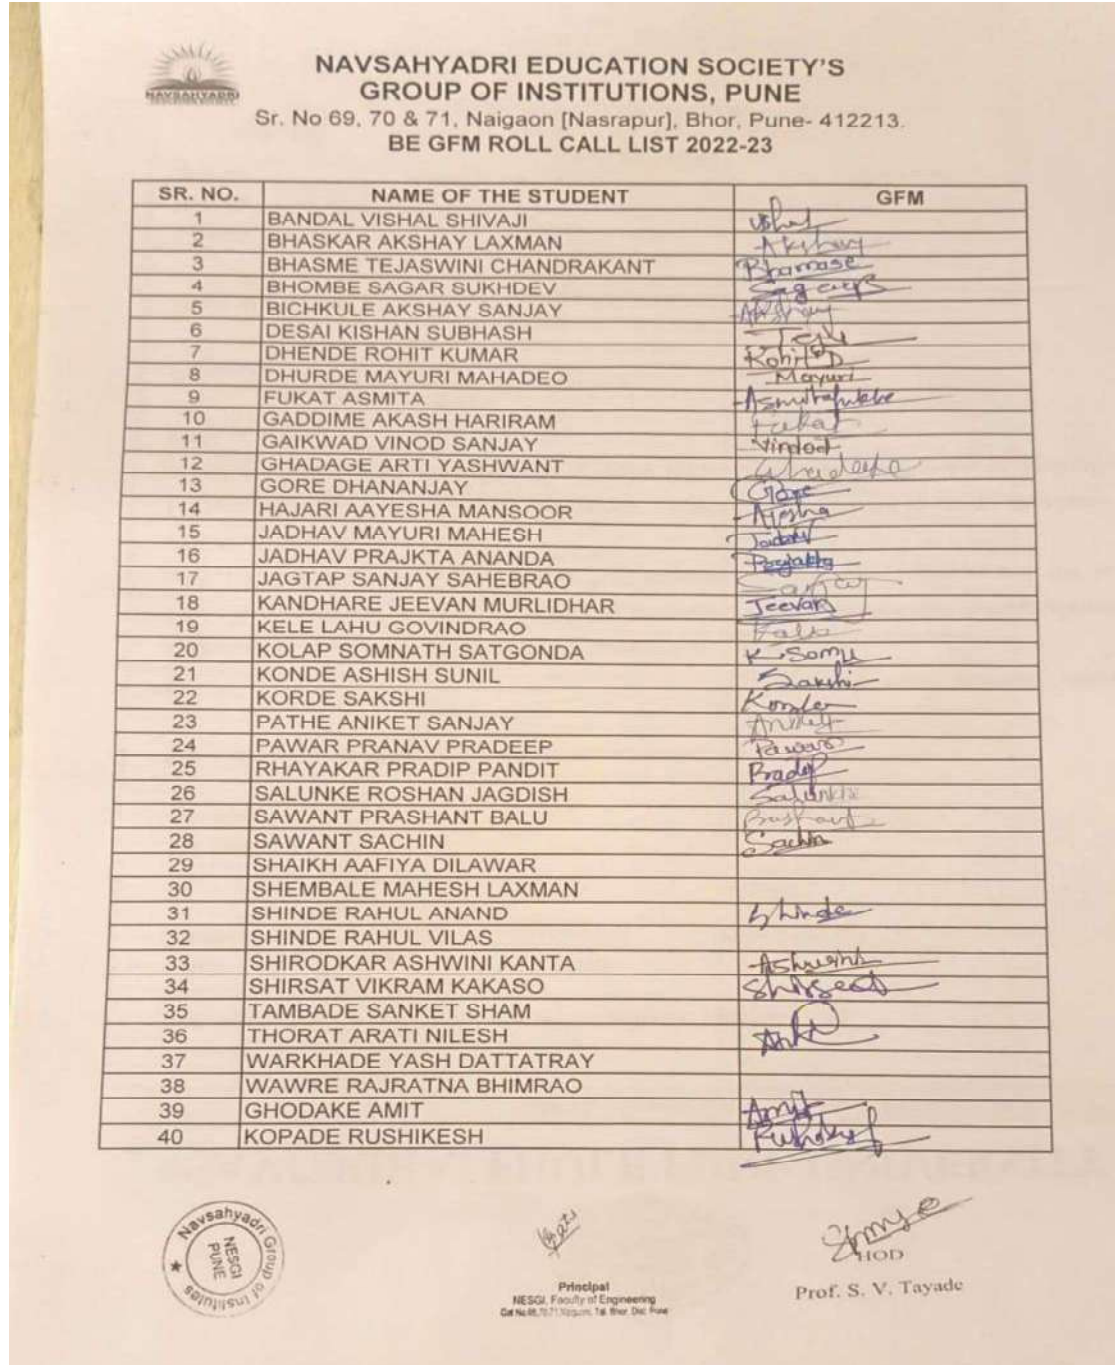 NAVSAHYADRI
NAVSAHYADRI EDUCATION SOCIETY'S
GROUP OF INSTITUTIONS, PUNE
Sr. No 69, 70 & 71, Naigaon [Nasrapur], Bhor, Pune- 412213.
BE GFM ROLL CALL LIST 2022-23
SR. NO. NAME OF THE STUDENT GFM
1 BANDAL VISHAL SHIVAJI
2 BHASKAR AKSHAY LAXMAN Akshay
3 BHASME TEJASWINI CHANDRAKANT
4 BHOMBE SAGAR SUKHDEV
5 BICHKULE AKSHAY SANJAY Akshay
6 DESAI KISHAN SUBHASH
7 DHENDE ROHIT KUMAR Rohit D
8 DHURDE MAYURI MAHADEO Mayuri
9 FUKAT ASMITA
10 GADDIME AKASH HARIRAM
11 GAIKWAD VINOD SANJAY
12 GHADAGE ARTI YASHWANT
13 GORE DHANANJAY Gore
14 HAJARI AAYESHA MANSOOR
15 JADHAV MAYURI MAHESH
16 JADHAV PRAJKTA ANANDA
17 JAGTAP SANJAY SAHEBRAO Sanjay
18 KANDHARE JEEVAN MURLIDHAR Jeevan
19 KELE LAHU GOVINDRAO
20 KOLAP SOMNATH SATGONDA K. Somu
21 KONDE ASHISH SUNIL Sakshi
22 KORDE SAKSHI
23 PATHE ANIKET SANJAY Aniket
24 PAWAR PRANAV PRADEEP Pawar
25 RHAYAKAR PRADIP PANDIT
26 SALUNKE ROSHAN JAGDISH Salunkhe
27 SAWANT PRASHANT BALU
28 SAWANT SACHIN Sachin
29 SHAIKH AAFIYA DILAWAR
30 SHEMBALE MAHESH LAXMAN
31 SHINDE RAHUL ANAND Shinde
32 SHINDE RAHUL VILAS
33 SHIRODKAR ASHWINI KANTA Ashwini
34 SHIRSAT VIKRAM KAKASO
35 TAMBADE SANKET SHAM
36 THORAT ARATI NILESH
37 WARKHADE YASH DATTATRAY
38 WAWRE RAJRATNA BHIMRAO
39 GHODAKE AMIT Amit
40 KOPADE RUSHIKESH
Navsahyadri Group of Institutes
NESGI
PUNE
Principal
NESGI, Faculty of Engineering
HOD
Prof. S. V. Tayade